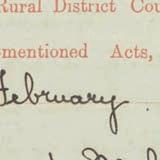 Rural District Cou
mentioned Acts,
February